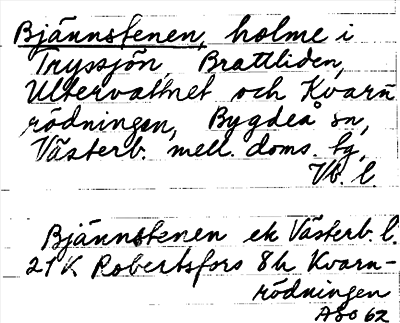 Bjännstenen, holme i
Tryssjön, Brattliden,
Ultervattnet och Kvarn
rödningen, Bygdeå sn,
Västerb. mell. doms. tg,
Vb. l.
Bjännstenen ek Västerb. l.
21K Robertsfors 8h Kvarn-
rödningen
ABo 62